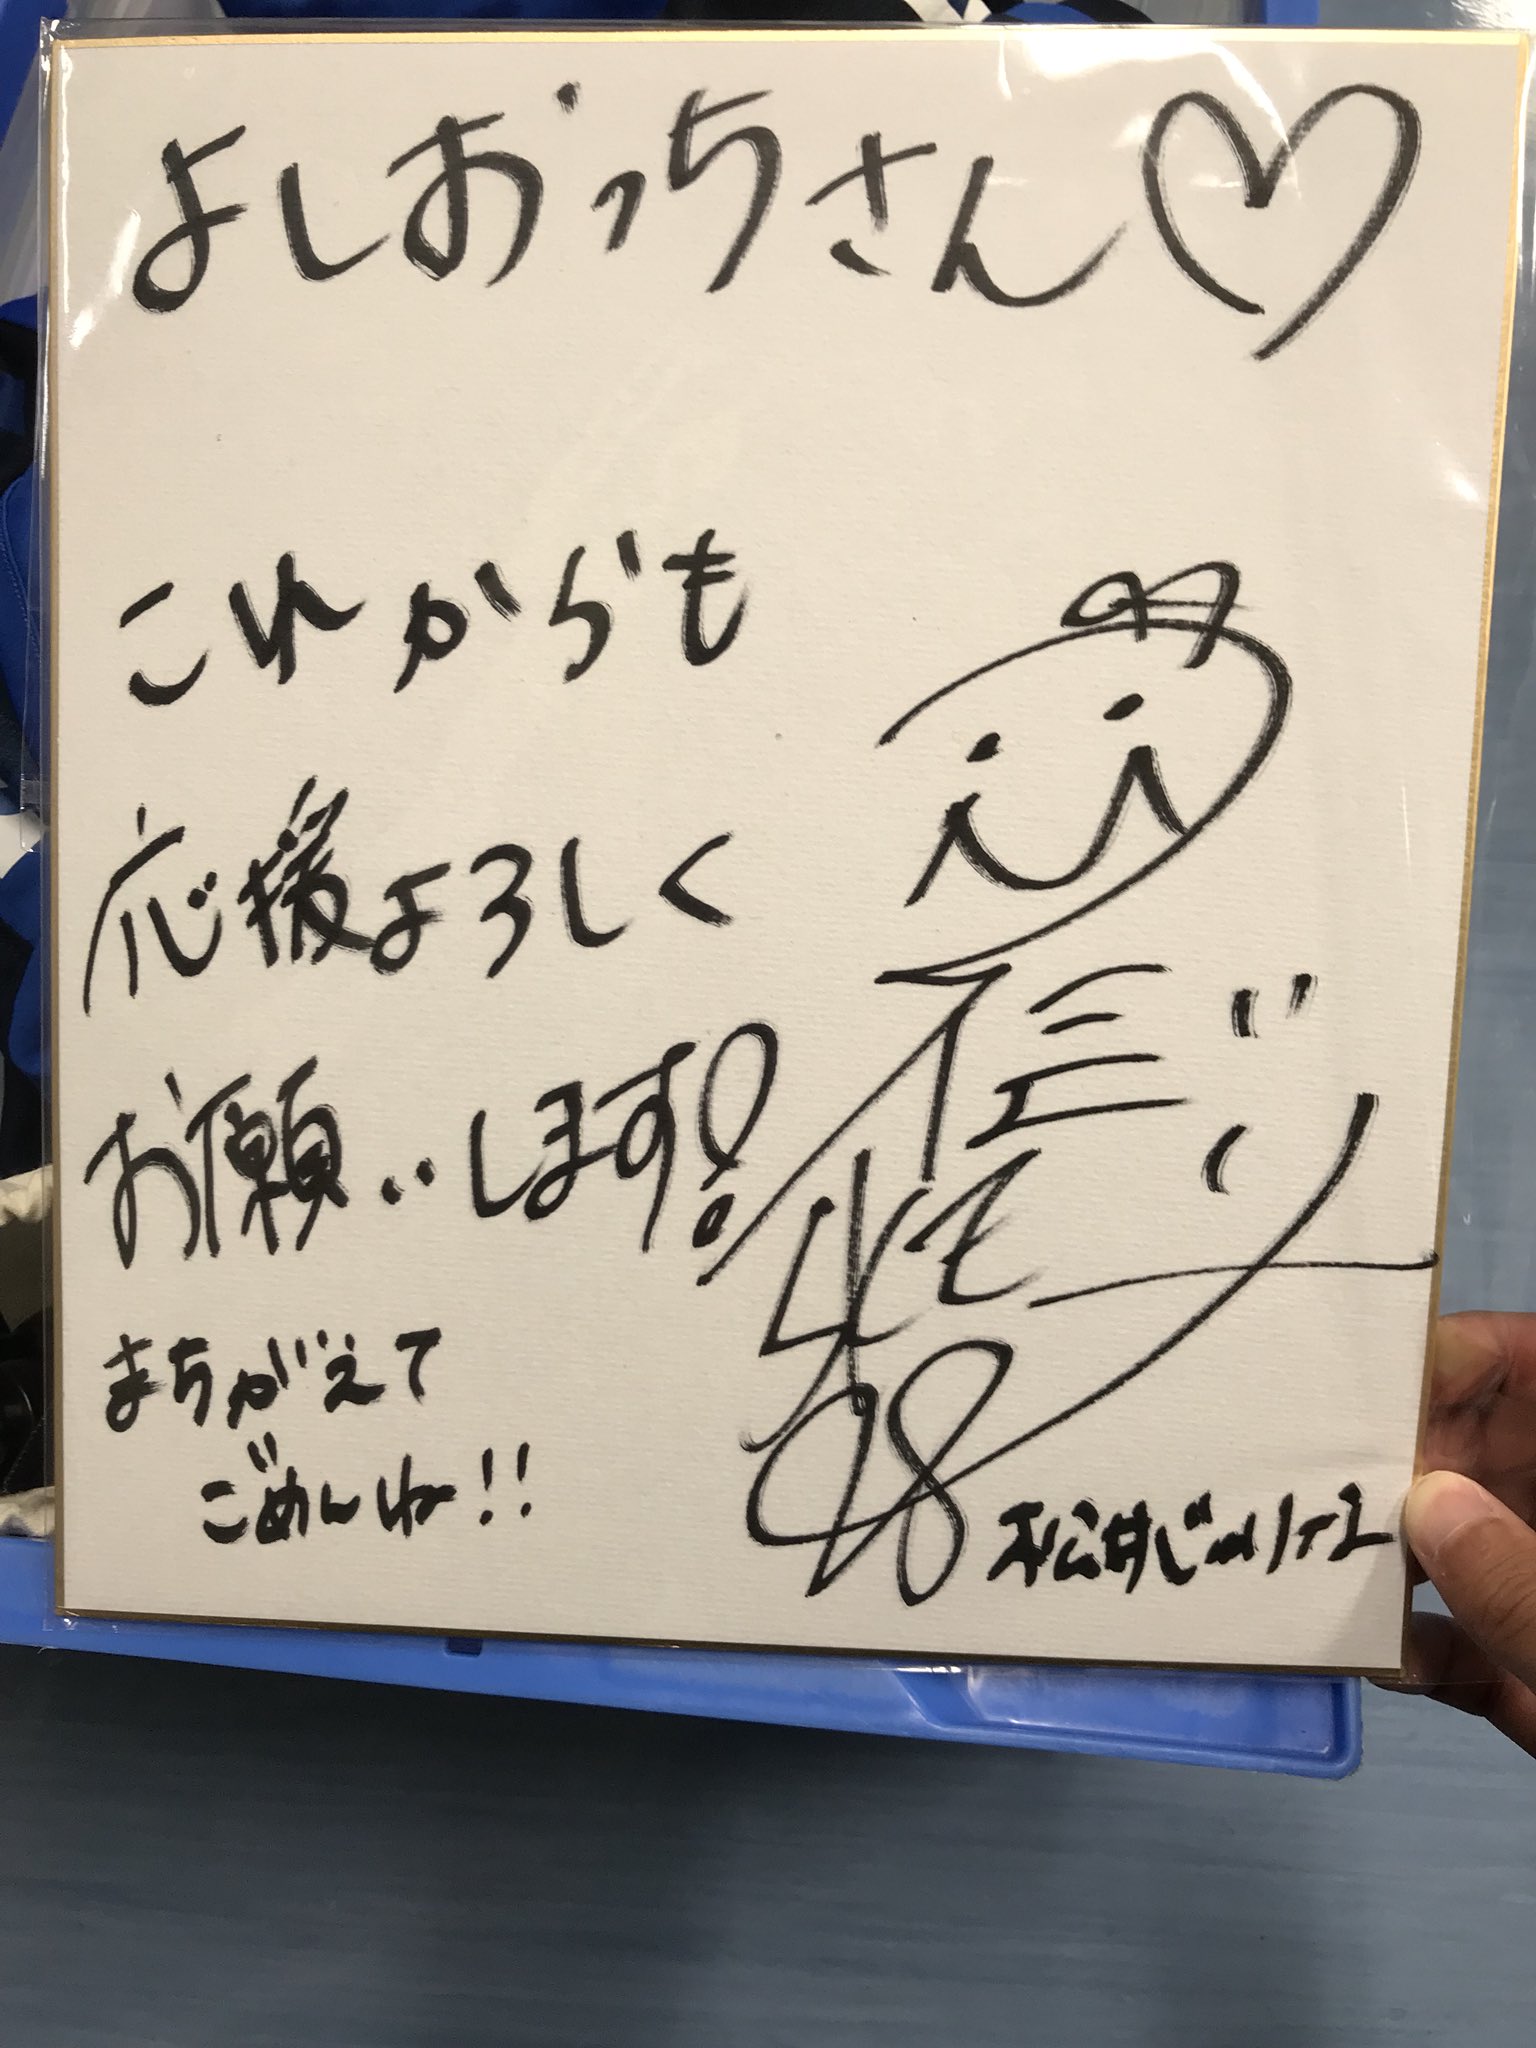 よしおっちさん♡
これからも
応援よろしく
お願いします!
まちがえて
ごめんね!!
松井じゅりな